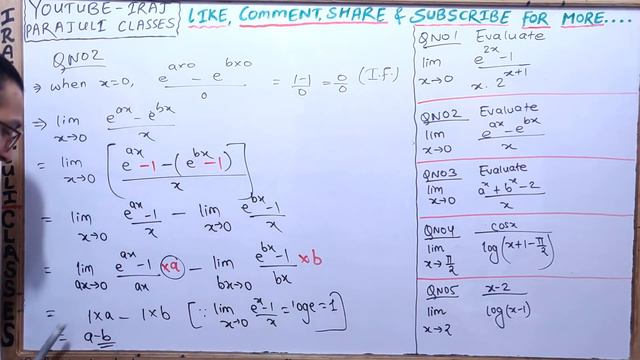 YOUTUBE-IRAJ
PARAJULI CLASSES
LIKE, COMMENT, SHARE & SUBSCRIBE FOR MORE.....
QNO2
⇒ when x=0, (e^{a×0} - e^{b×0})/0 = (1-1)/0 = 0/0 (I.F)
⇒ lim_{x→0} (e^{ax} - e^{bx})/x
= lim_{x→0} [(e^{ax} -1 - (e^{bx} -1))/x]
= lim_{x→0} (e^{ax}-1)/x - lim_{x→0} (e^{bx}-1)/x
= lim_{ax→0} (e^{ax}-1)/ax ×a - lim_{bx→0} (e^{bx}-1)/bx ×b
= 1×a - 1×b [∵ lim_{x→0} (e^x-1)/x = loge = 1]
= a-b
QNO1 Evaluate
lim_{x→0} (e^{2x}-1)/(x·2^{x+1})
QNO2 Evaluate
lim_{x→0} (e^{ax} - e^{bx})/x
QNO3 Evaluate
lim_{x→0} (a^x + b^x - 2)/x
QNO4
lim_{x→π/2} cosx/log(x+1-π/2)
QNO5
lim_{x→2} (x-2)/log(x-1)